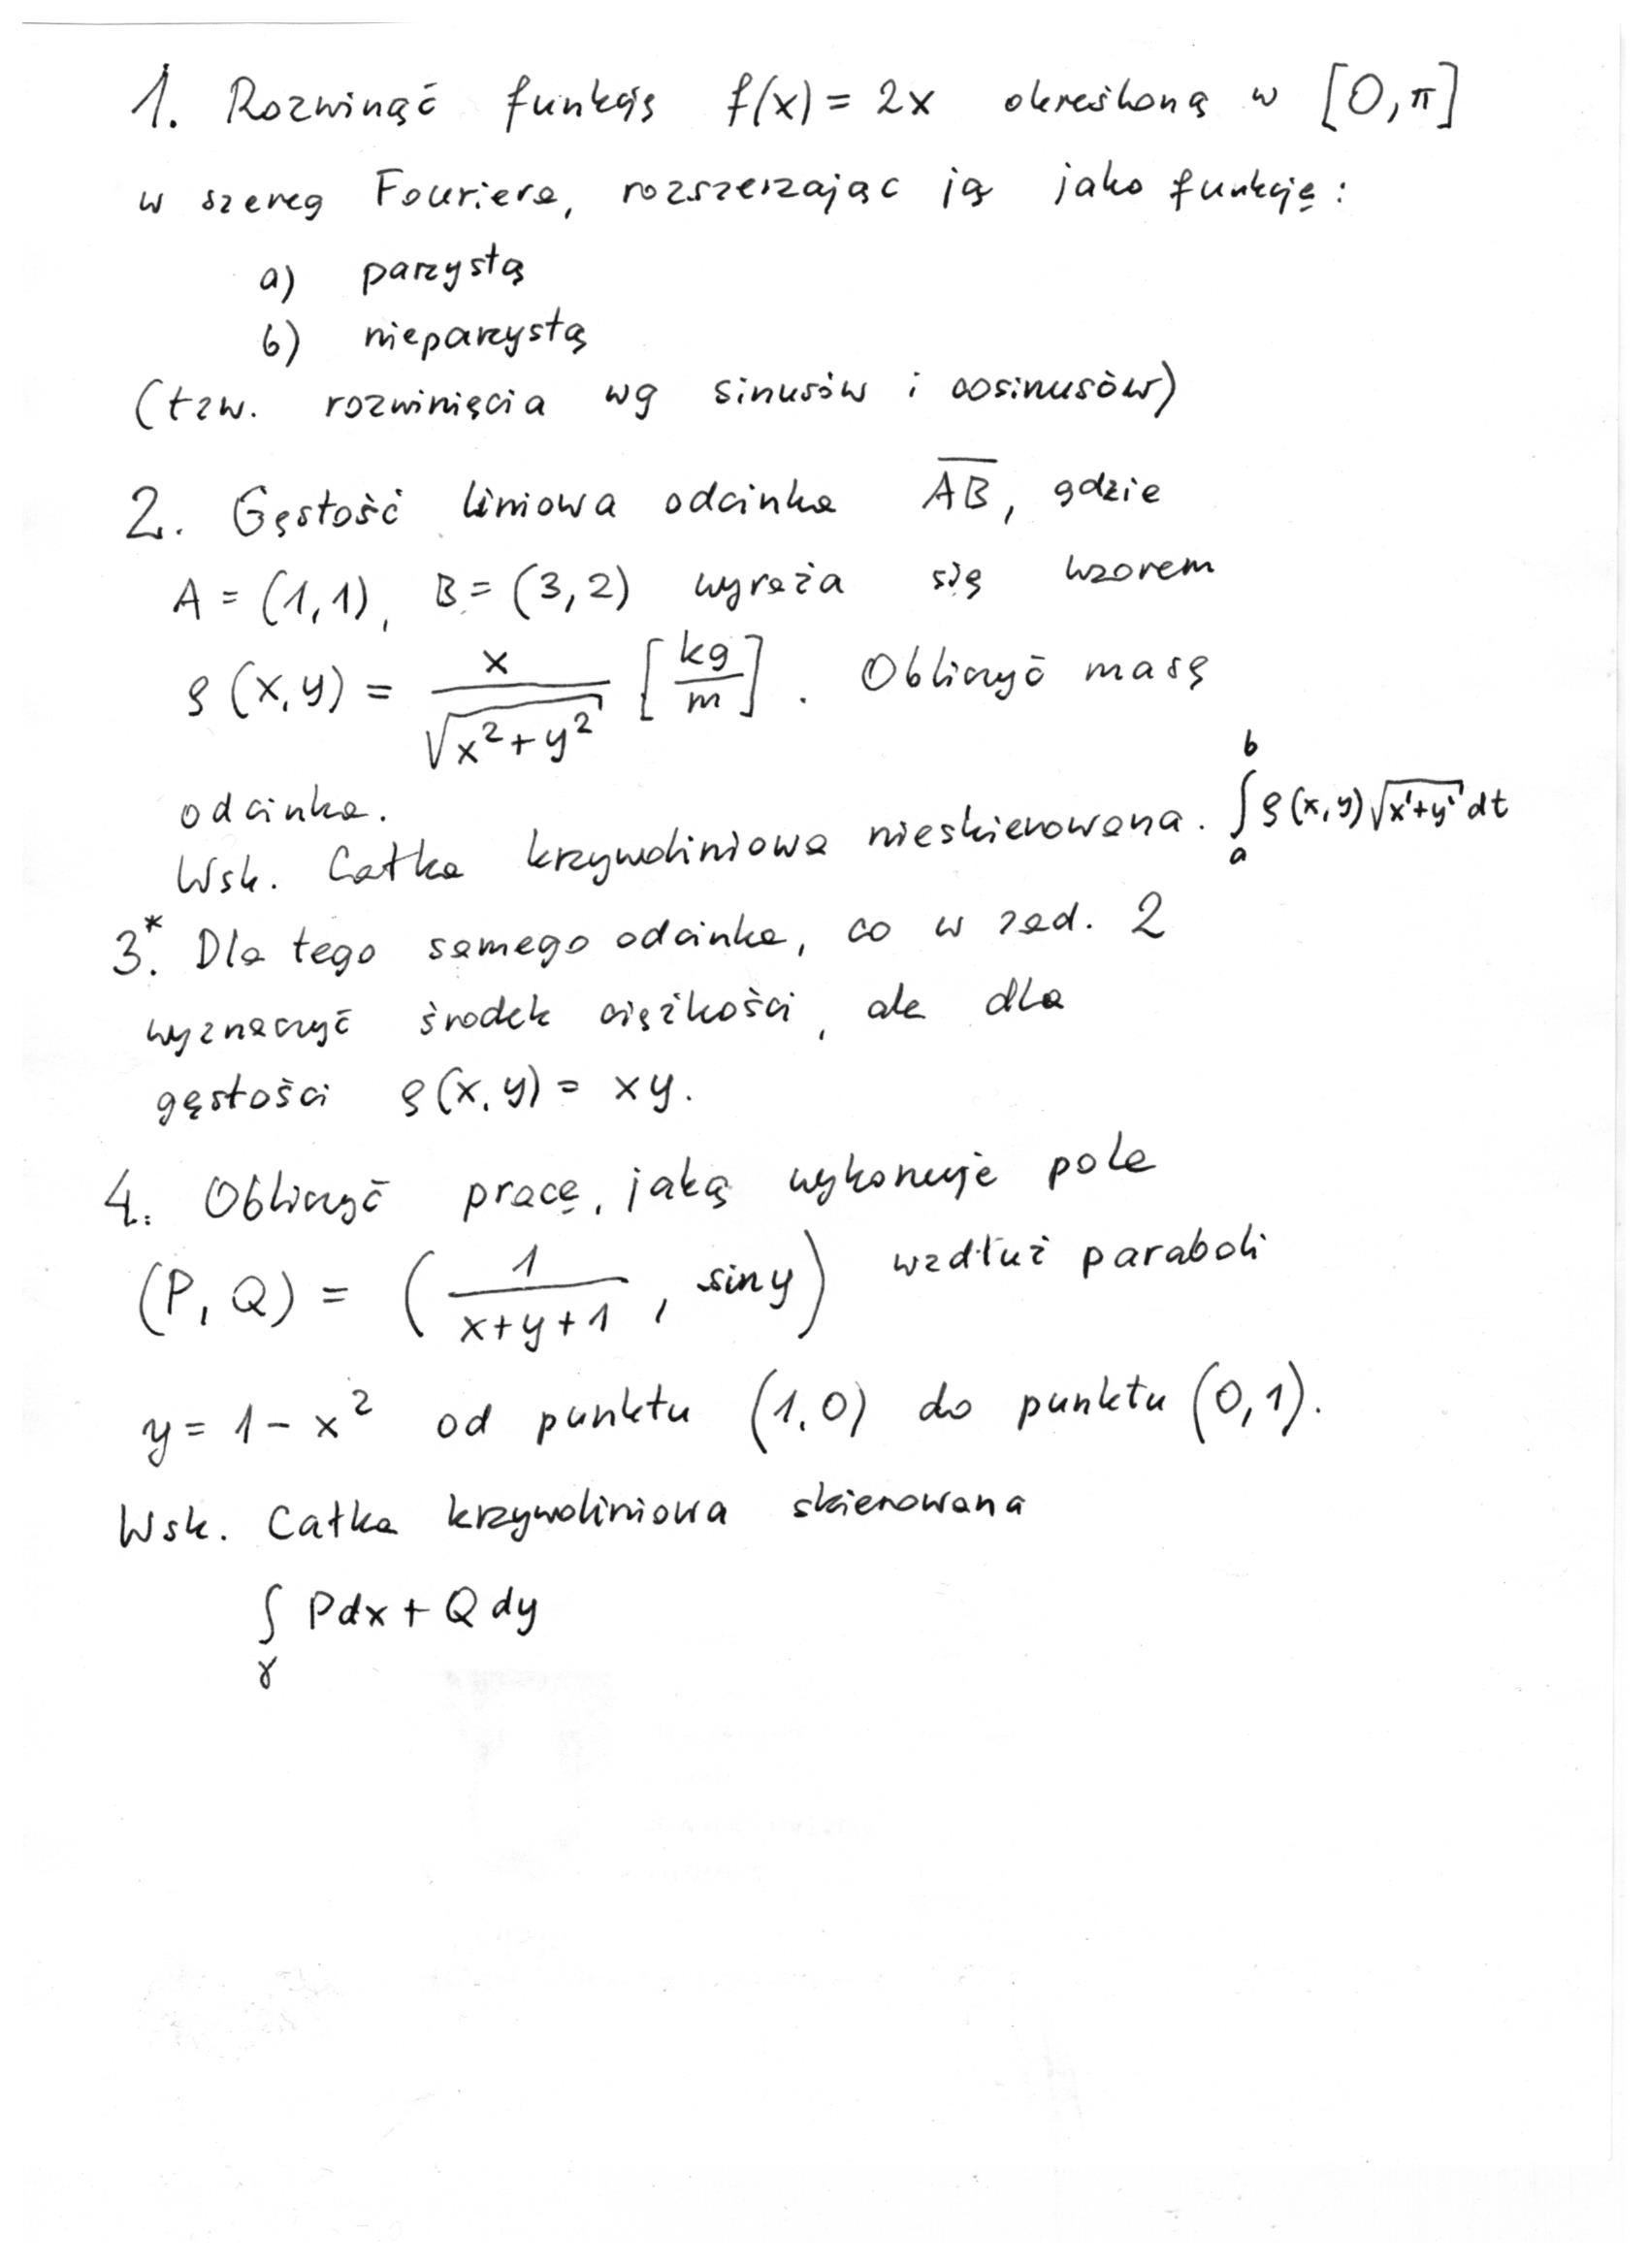 1. Rozwinąć funkcję f(x) = 2x określoną w [0, π]
w szereg Fouriera, rozszerzając ją jako funkcję:
a) parzystą
b) nieparzystą
(tzw. rozwinięcia wg sinusów i cosinusów)
2. Gęstość liniowa odcinka A̅B̅, gdzie
A = (1,1), B = (3,2) wyraża się wzorem
ρ(x,y) = x/√(x²+y²) [kg/m]. Obliczyć masę
odcinka.
Wsk. Całka krzywoliniowa nieskierowana. ∫_a^b ρ(x,y)√(x'+y') dt
3*. Dla tego samego odcinka, co w zad. 2
wyznaczyć środek ciężkości, ale dla
gęstości ρ(x,y) = xy.
4. Obliczyć pracę, jaką wykonuje pole
(P, Q) = (1/(x+y+1), siny) wzdłuż paraboli
y = 1 - x² od punktu (1,0) do punktu (0,1).
Wsk. Całka krzywoliniowa skierowana
∫_γ Pdx + Qdy